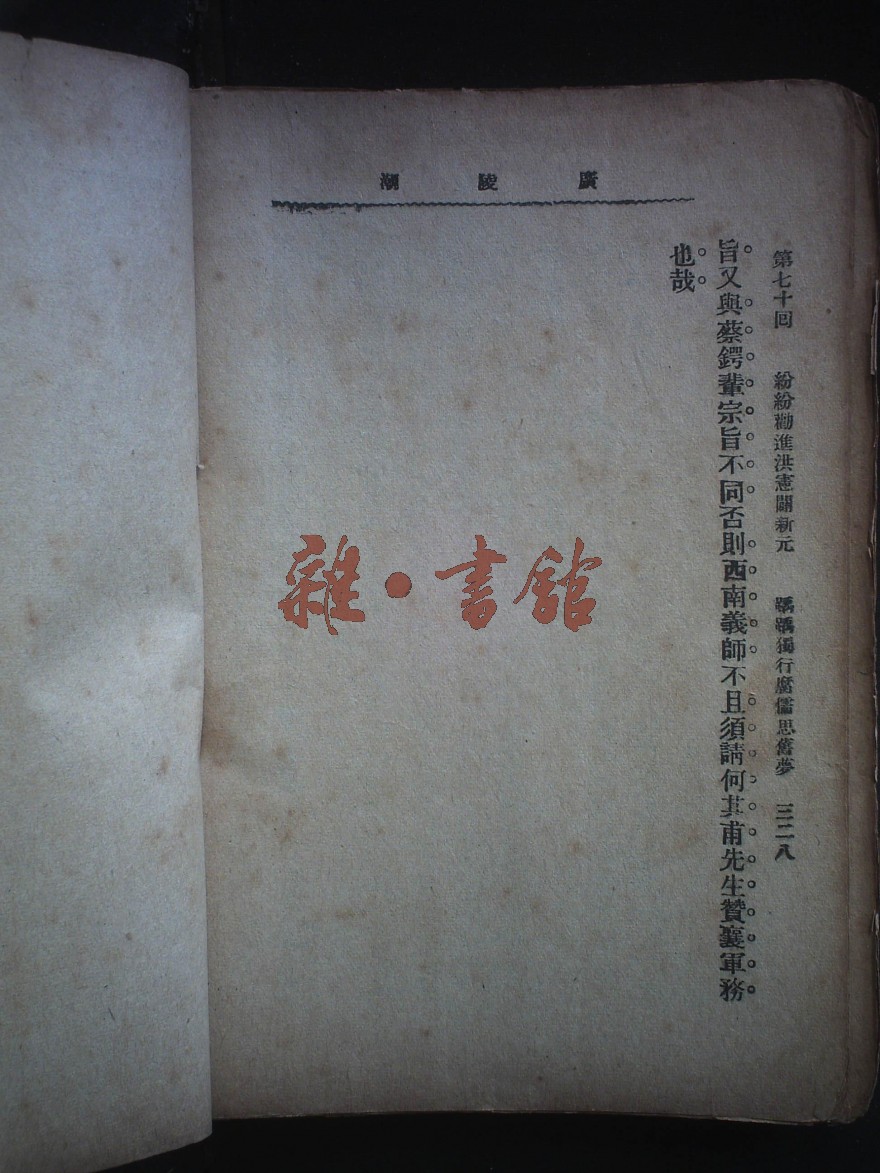 廣陵潮
第七十回 紛紛勸進洪憲闢新元 踽踽獨行腐儒思舊夢 三二八
旨。又與。蔡。鍔。輩。宗。旨。不。同。否則。西。南。義。師。不且。須。請。何。其。甫。先。生。贊。襄。軍。務。
也。哉。
雜·書館